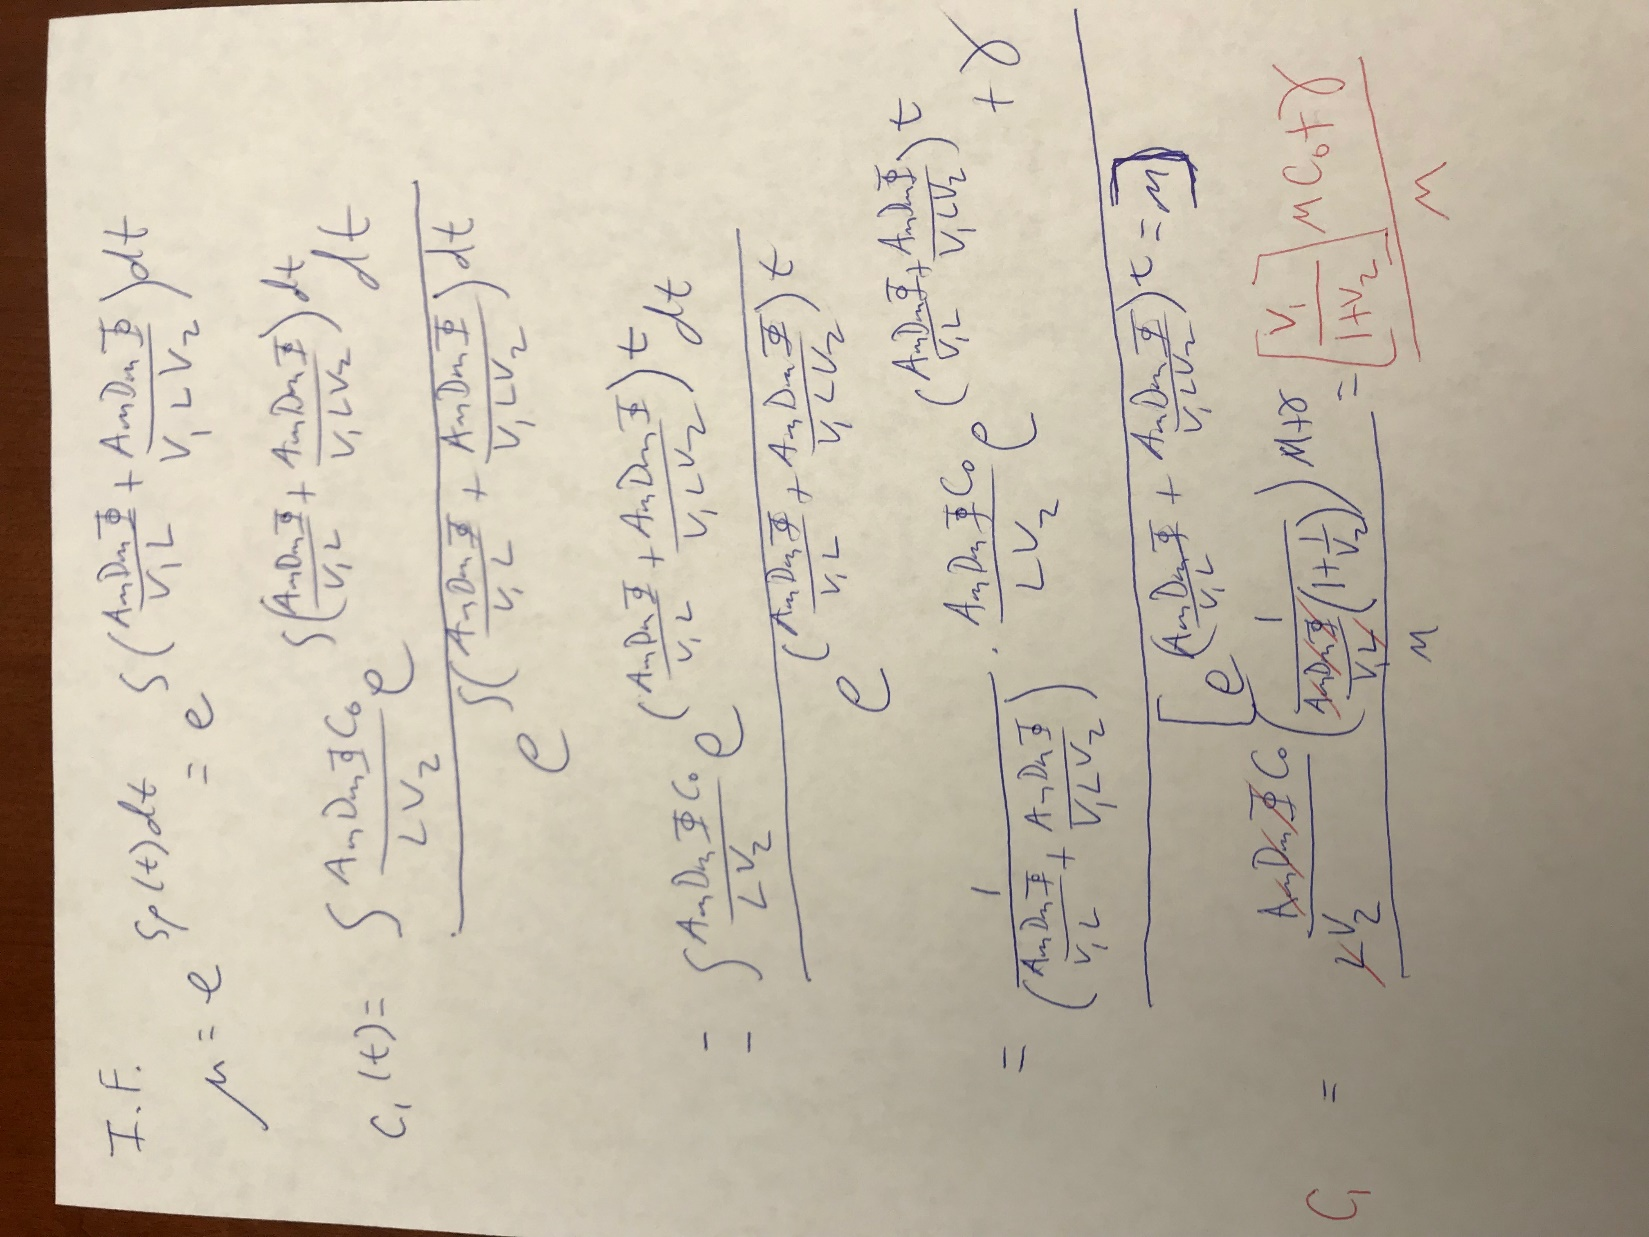 I.F.
μ = e^{∫p(t)dt} = e^{∫(AmDmΦ/V₁L + AmDmΦ/V₁LV₂)dt}
C₁(t) = ∫ AmDmΦC₀/LV₂ e^{∫(AmDmΦ/V₁L + AmDmΦ/V₁LV₂)dt} dt / e^{∫(AmDmΦ/V₁L + AmDmΦ/V₁LV₂)dt}
= ∫ AmDmΦC₀/LV₂ e^{(AmDmΦ/V₁L + AmDmΦ/V₁LV₂)t} dt / e^{(AmDmΦ/V₁L + AmDmΦ/V₁LV₂)t}
= 1/(AmDmΦ/V₁L + AmDmΦ/V₁LV₂) · AmDmΦC₀/LV₂ e^{(AmDmΦ/V₁L + AmDmΦ/V₁LV₂)t} + γ
[e^{(AmDmΦ/V₁L + AmDmΦ/V₁LV₂)t} = M]
C₁ = AmDmΦC₀/LV₂ (1/(AmDmΦ/V₁L (1+1/V₂))) M+γ / M = [V₁/1+V₂] MC₀+γ / M